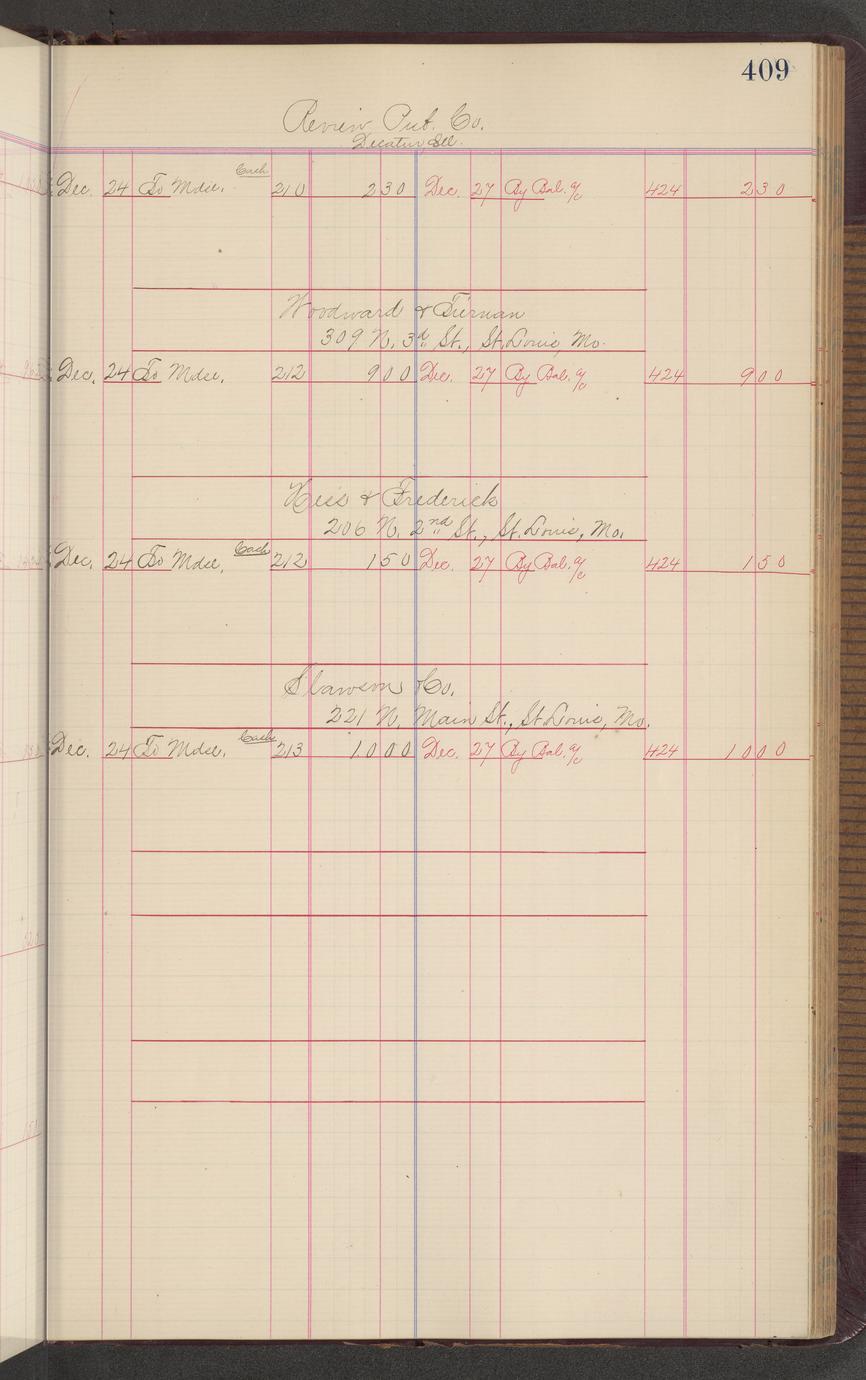 409
Review Pub. Co.
Decatur, Ill.
Dec. 24 To Mdse. Cash 210 2 3 0 Dec. 27 By Bal. a/c 424 2 3 0
Woodward & Tiernan
309 N. 3d St., St. Louis, Mo.
Dec. 24 To Mdse. 212 9 0 0 Dec. 27 By Bal. a/c 424 9 0 0
& Frederick
206 N. 2nd St., St. Louis, Mo.
Dec. 24 To Mdse. Cash 212 1 5 0 Dec. 27 By Bal. a/c 424 1 5 0
Slawson & Co.
221 N. Main St., St. Louis, Mo.
Dec. 24 To Mdse. Cash 213 1 0 0 0 Dec. 27 By Bal. a/c 424 1 0 0 0